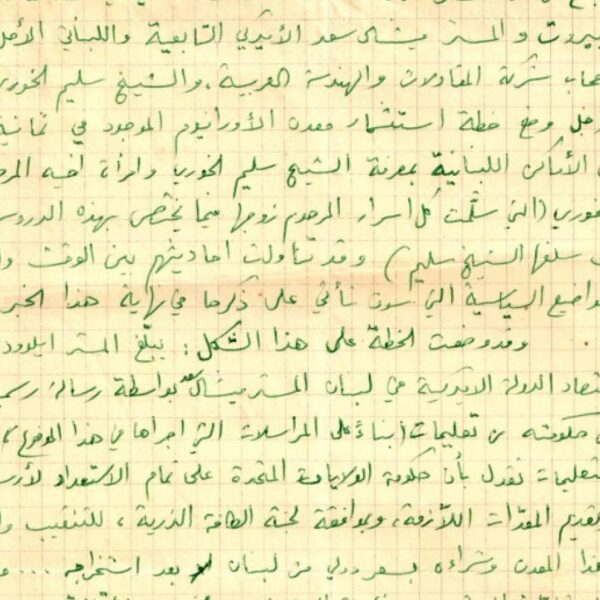 بيروت والمستر ميشال سعد الأميركي التابعية واللبناني الأصل
شركة المقاولات والهندسة العربية، والشيخ سليم الخوري
وضع خطة استثمار معدن الأورانيوم الموجود في ثمانية
الأماكن اللبنانية بمعرفة الشيخ سليم الخوري وامرأة اخيه
خوري (التي سلّمت كل اسرار المرحوم زوجها فيما يختص بهذه الدروس
سلفها الشيخ سليم) وقد تناولت احاديثهم بين الوقت
المواضيع السياسية التي سوف نأتي على ذكرها في نهاية هذا الخبر
وقد وضعت الخطة على هذا الشكل: يبلّغ المستر
الدولة الاميركية في لبنان المستر ميشال سعد بواسطة رسالة
حكومته من تعليمات (بناءً على المراسلات التي اجراها في هذا الموضوع)
تعليمات تقول بأن حكومة الولايات المتحدة على تمام الاستعداد
تقديم المعدّات اللازمة، وبموافقة لجنة الطاقة الذرية، للتنقيب
هذا المعدن وشراءه بسعر دولي من لبنان بعد استخراجه ...